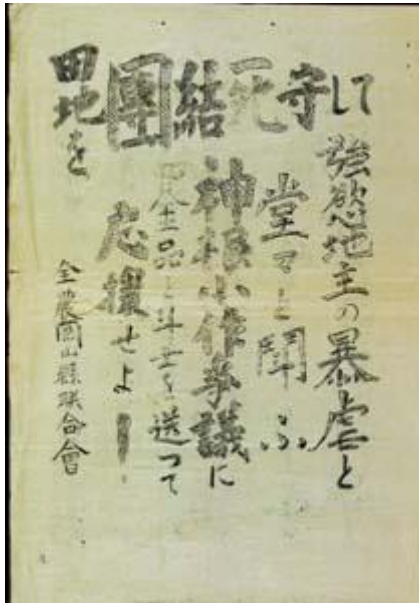 田地を團結死守して
強慾地主の暴虐と
堂々と闘ふ
神根小作争議に
金品と斗士を送つて
応援せよ！
全農岡山縣联合會